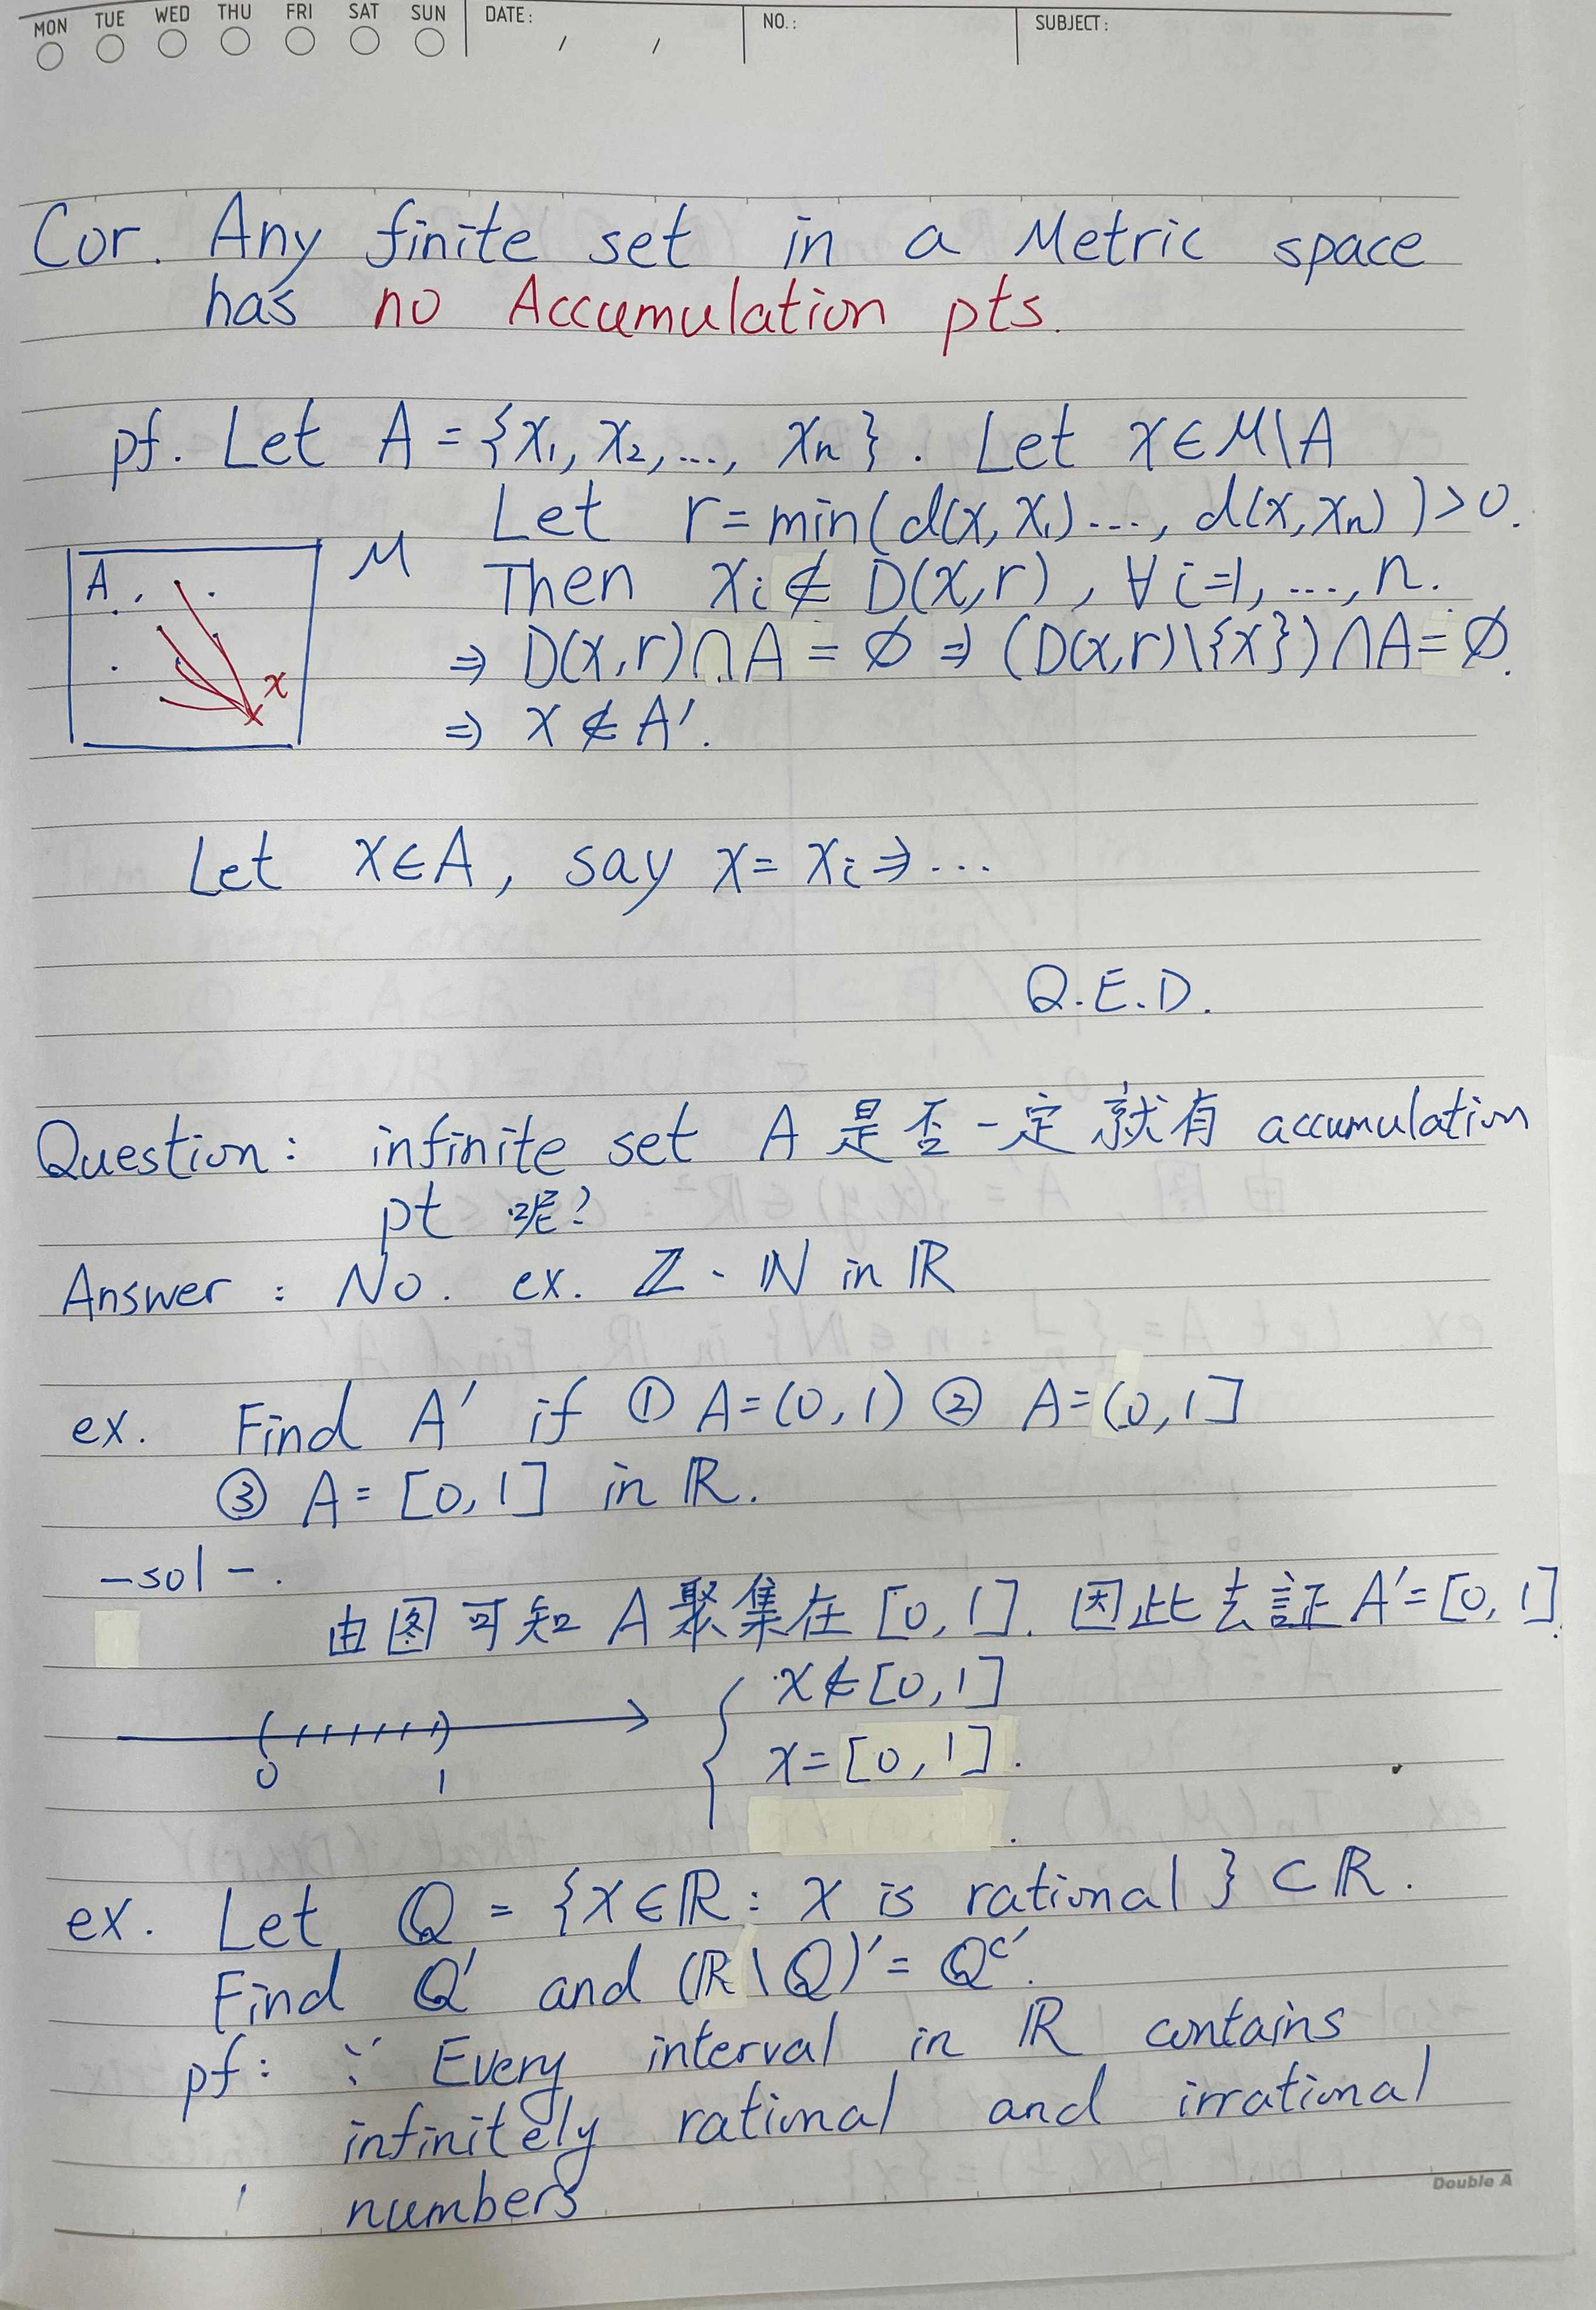 MON TUE WED THU FRI SAT SUN DATE: / / NO.: SUBJECT:
Cor. Any finite set in a Metric space
has no Accumulation pts.
pf. Let A = {x₁, x₂, ..., xₙ}. Let x∈M\A
Let r = min(d(x, x₁)..., d(x, xₙ)) > 0.
M
A
Then xᵢ ∉ D(x,r), ∀i=1, ..., n.
⇒ D(x,r)∩A = ∅ ⇒ (D(x,r)\{x})∩A = ∅.
x
⇒ x ∉ A'.
Let x∈A, say x = xᵢ ⇒ ...
Q.E.D.
Question: infinite set A 是否一定就有 accumulation
pt 呢?
Answer: No. ex. ℤ、ℕ in ℝ
ex. Find A' if ① A=(0,1) ② A=(0,1]
③ A=[0,1] in ℝ.
-sol-.
由图可知 A 聚集在 [0,1]. 因此去証 A'=[0,1].
x∉[0,1]
x=[0,1].
0 1
ex. Let ℚ = {x∈ℝ: x is rational} ⊂ ℝ.
Find ℚ' and (ℝ\ℚ)' = ℚᶜ'.
pf: ∵ Every interval in ℝ contains
infinitely rational and irrational
numbers
Double A